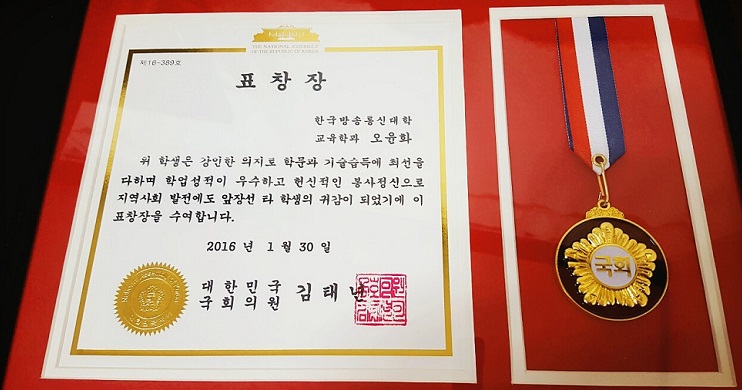 THE NATIONAL ASSEMBLY
OF THE REPUBLIC OF KOREA
제16-389호
표창장
한국방송통신대학
교육학과 오윤화
위 학생은 강인한 의지로 학문과 기술습득에 최선을
다하며 학업성적이 우수하고 헌신적인 봉사정신으로
지역사회 발전에도 앞장선 타 학생의 귀감이 되었기에 이
표창장을 수여합니다.
2016 년 1 월 30 일
대한민국
국회의원 김태년
국회